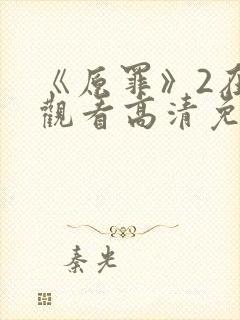 《原罪》2在
觀看高清免
秦光